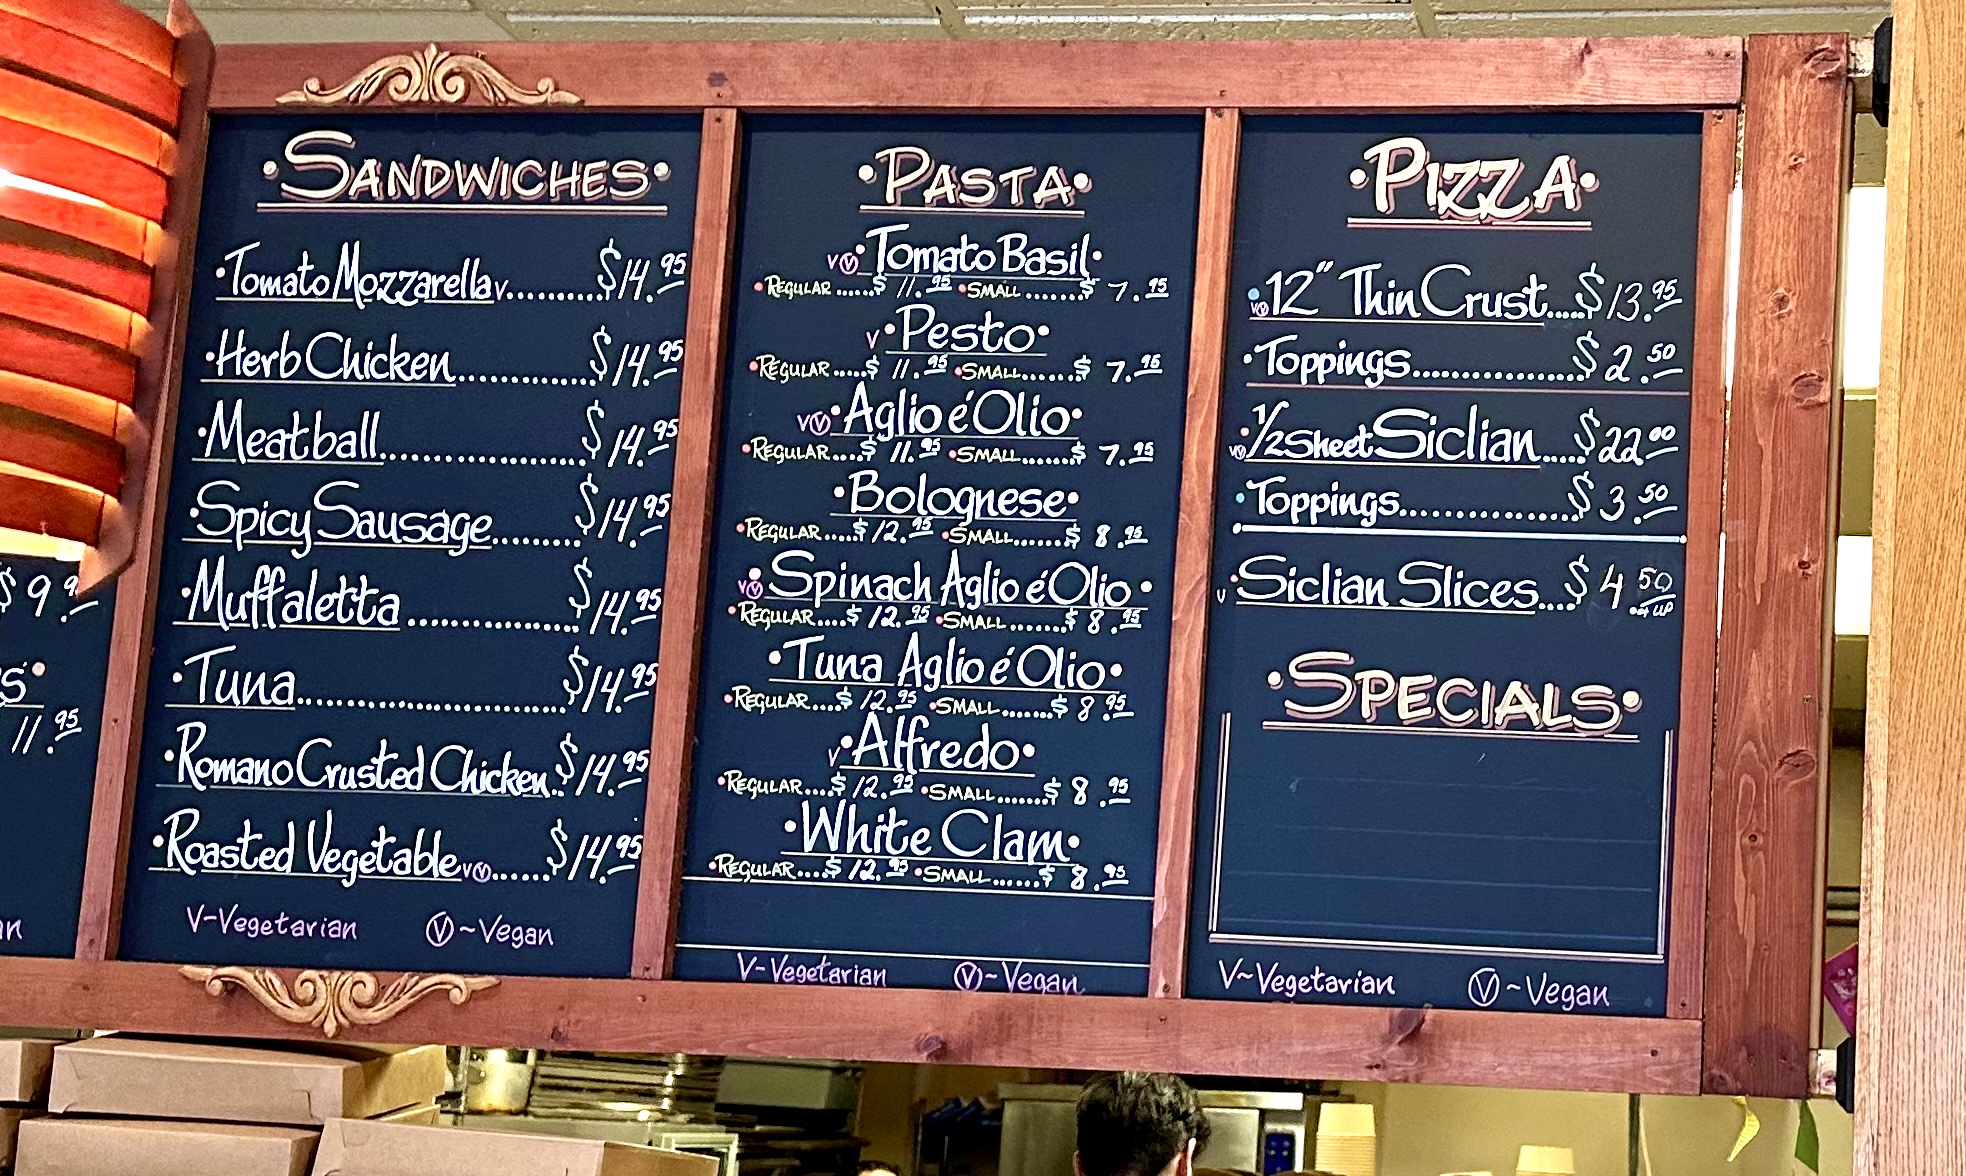 $9.9
s
11.95
an
Sandwiches
Tomato Mozzarella v..........$14.95
Herb Chicken..............$14.95
Meatball......................$14.95
Spicy Sausage.........$14.95
Muffaletta..................$14.95
Tuna............................$14.95
Romano Crusted Chicken..$14.95
Roasted Vegetable v Ⓥ......$14.95
V-Vegetarian Ⓥ~Vegan
Pasta
v Ⓥ Tomato Basil
Regular......$11.95 Small.......$7.95
v Pesto
Regular.....$11.95 Small.......$7.95
v Ⓥ Aglio é Olio
Regular.....$11.95 Small.......$7.95
Bolognese
Regular.....$12.95 Small.......$8.95
v Ⓥ Spinach Aglio é Olio
Regular....$12.95 Small.......$8.95
Tuna Aglio é Olio
Regular....$12.95 Small.......$8.95
v Alfredo
Regular....$12.95 Small.......$8.95
White Clam
Regular....$12.95 Small......$8.95
V-Vegetarian Ⓥ~Vegan
Pizza
v Ⓥ 12" Thin Crust.....$13.95
Toppings..................$2.50
v Ⓥ 1/2 Sheet Siclian.....$22.00
Toppings..................$3.50
v Siclian Slices....$4.50 & up
Specials
V~Vegetarian Ⓥ~Vegan